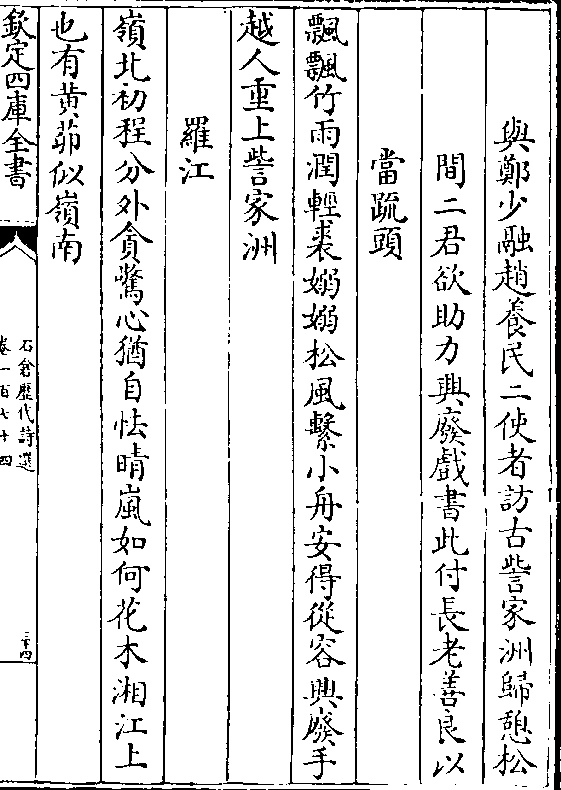 與鄭少融趙養民二使者訪古訾家洲歸憩松
間二君欲助力興廢戲書此付長老善良以
當䟽頭
飄飄竹雨潤輕裘嫋嫋松風繫小舟安得從容興廢手
越人重上訾家洲
羅江
嶺北初程分外貪驚心猶自怯晴嵐如何花木湘江上
也有黄茆似嶺南
欽定四庫全書
石倉歷代詩選
卷一百七十四
三十四